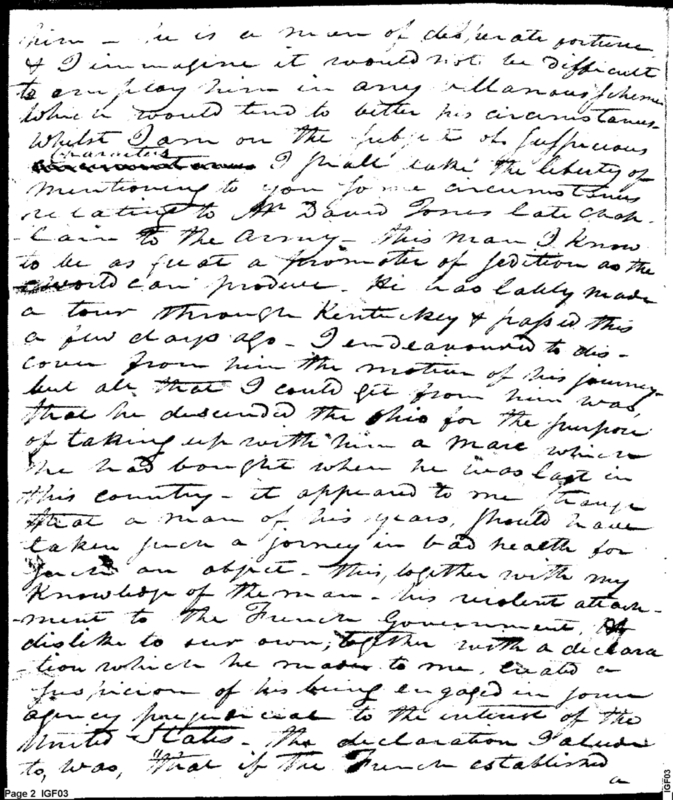 him – he is a man of desperate fortune
& I immagine it would not be difficult
to employ him in any villanous scheme
which would tend to better his circumstances–
Whilst I am on the subject of suspicious
characters
I shall take the liberty of
mentioning to you some circumstances
relating to Mr David Jones late Chap-
-lain to the army – this man I know
to be as great a promoter of sedition as the
world can produce. He has lately made
a tour through Kentuckey & passed this
a few days ago – I endeavoured to dis-
cover from him the motive of his journey–
but all that I could get from him was,
that he descended the Ohio for the purpose
of taking up with him a mare which
he had bought when he was last in
this country – it appeared to me strange
that a man of his years, should have
taken such a jorney in bad health for
such an object – this, together with my
knowledge of the man – his violent attach-
-ment to the French Government,
dislike to our own, together with a declara
-tion which he made to me, created a
suspicion of his being engaged in some
agency prejudicial to the interest of the
United States – the declaration I alude
to, was, "that if the French established
a
Page 2 IGF03
IGF03